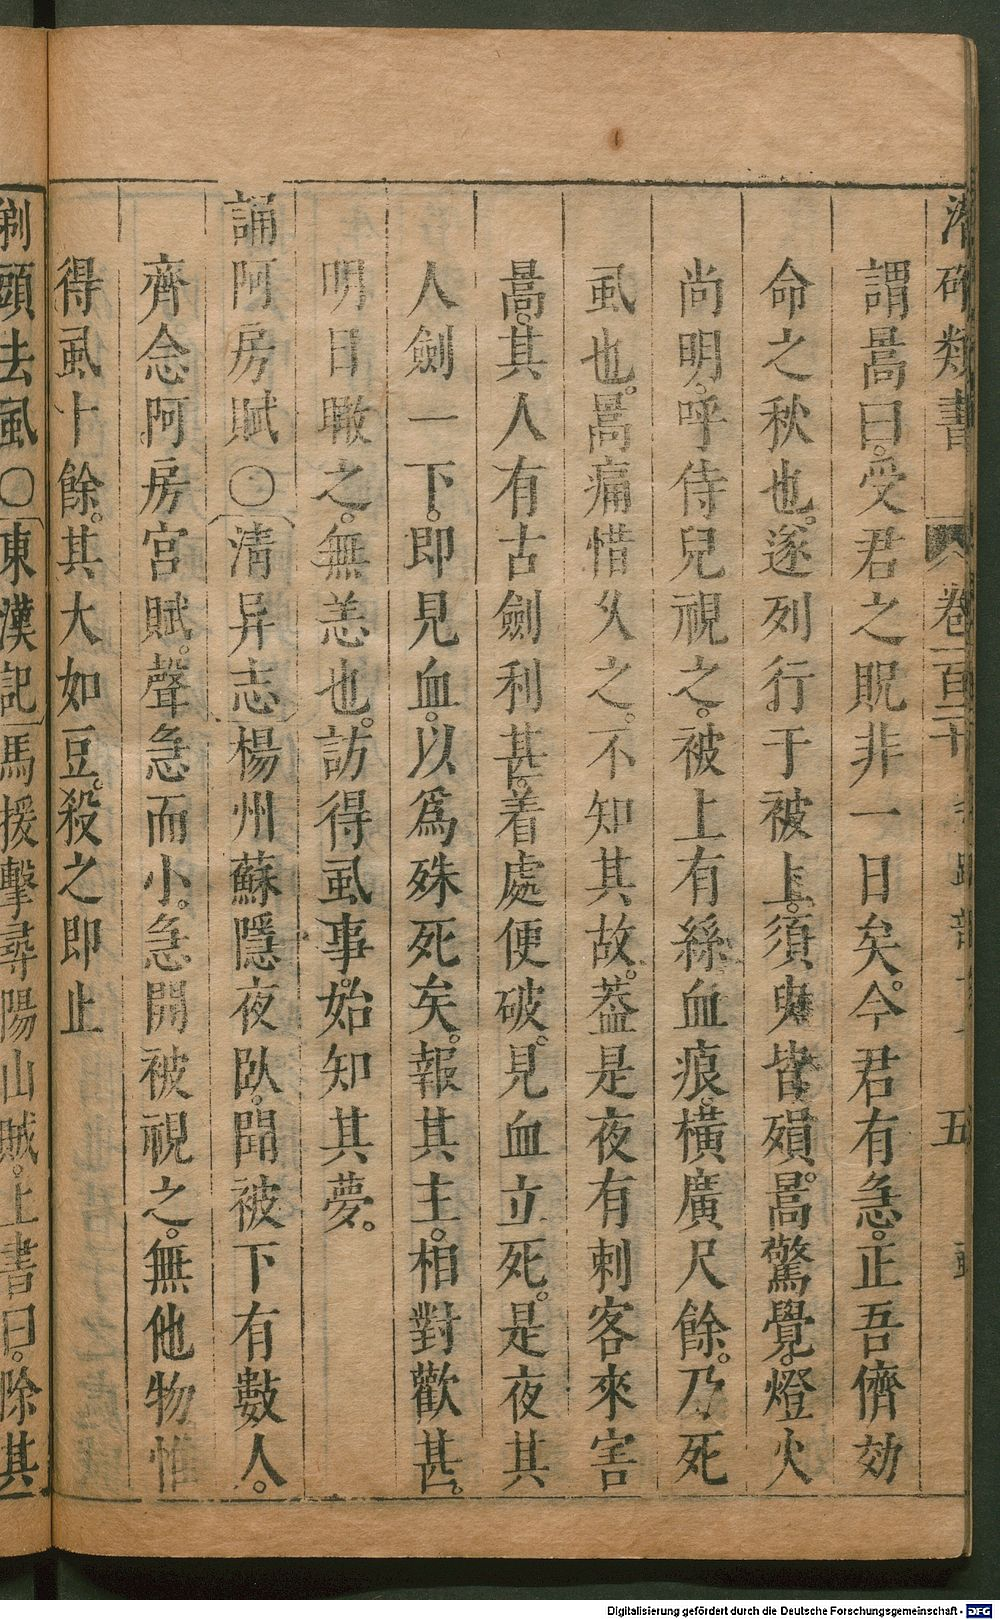 潛確類書 卷一百二十 五
謂暠曰。受君之貺非一日矣。今君有急。正吾儕効
命之秋也。遂列行于被上。須臾皆殞。暠驚覺。燈火
尚明。呼侍兒視之。被上有絲血痕。橫廣尺餘。乃死
虱也。暠痛惜久之。不知其故。葢是夜有刺客來害
暠。其人有古劍利甚。着處便破。見血立死。是夜其
人劍一下。即見血。以爲殊死矣。報其主。相對歡甚。
明日瞰之。無恙也。訪得虱事。始知其夢。
誦阿房賦〇清异志楊州蘇隱夜臥。聞被下有數人。
齊念阿房宮賦。聲急而小。急開被視之。無他物惟
得虱十餘。其大如豆。殺之即止
剃頭去虱〇東漢記馬援擊尋陽山賊。上書曰。除其
Digitalisierung gefördert durch die Deutsche Forschungsgemeinschaft - DFG